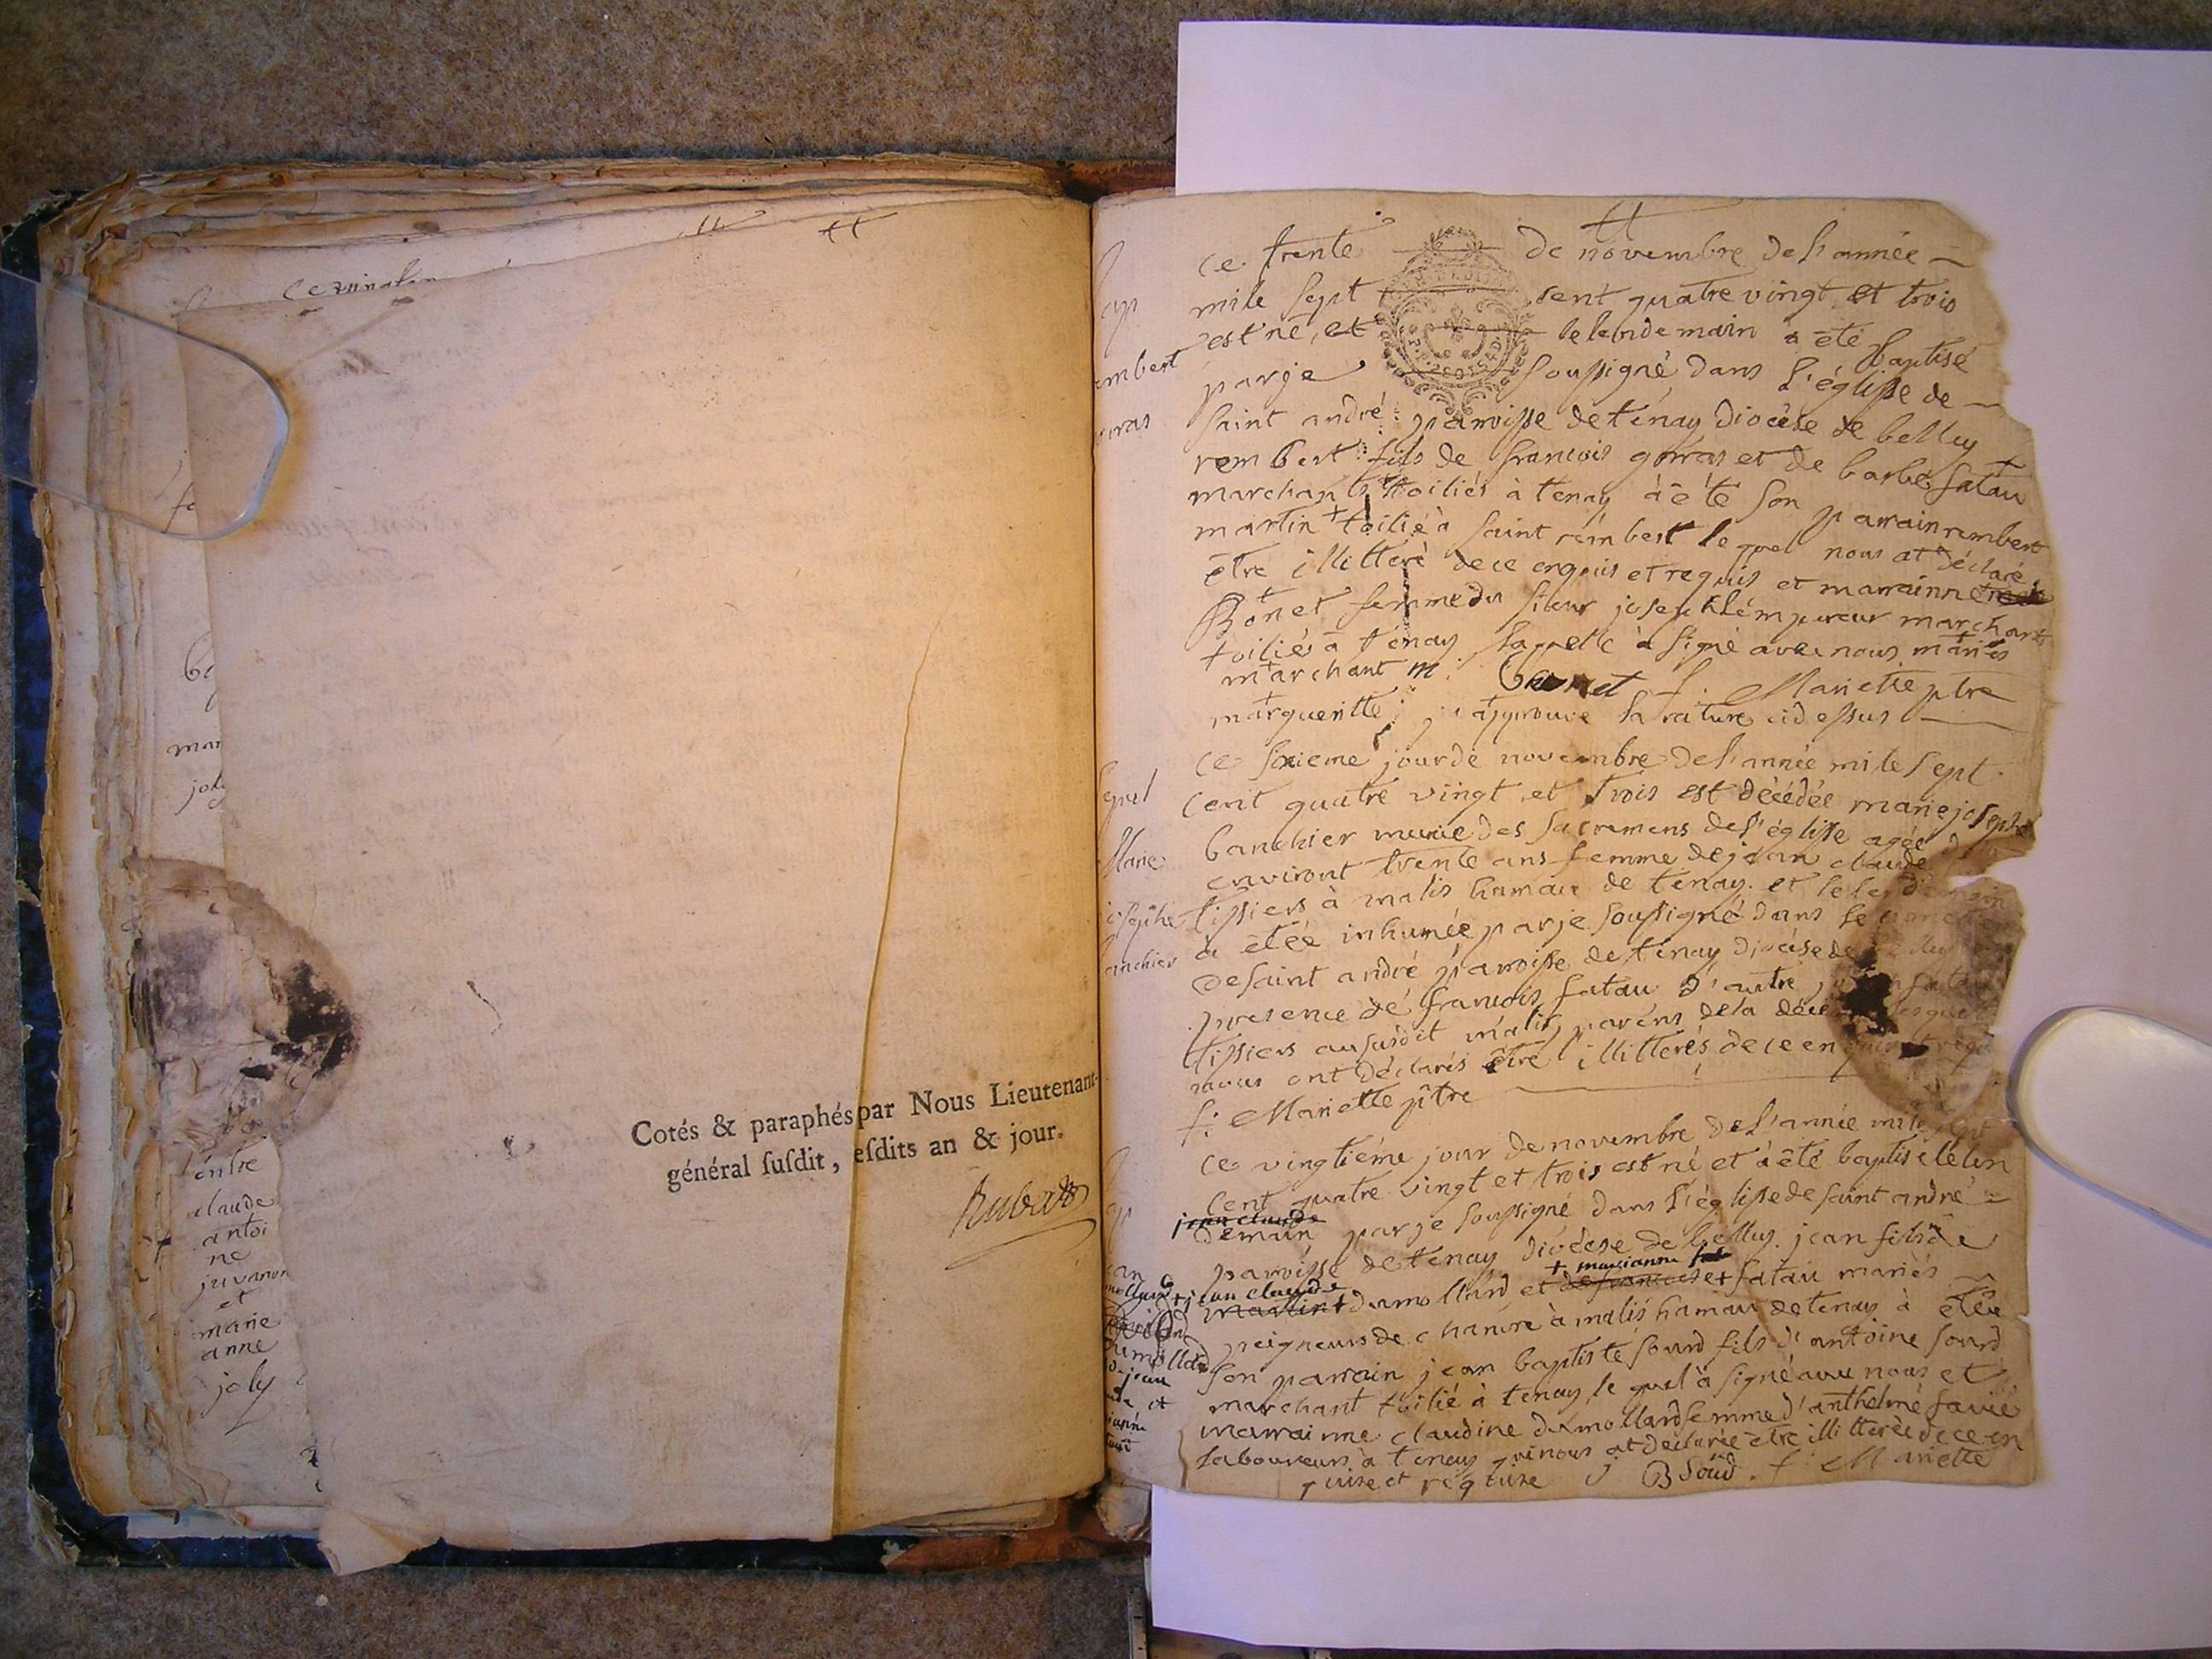 be
mar
joly
entre
claude
antoi
ne
juvanon
et
marie
anne
joly
Cotés & paraphés par Nous Lieutenant-
général ſuſdit, eſdits an & jour.
ce trente de novembre de l'année
mile sept cent quatre vingt et trois
est né, et le lendemain a été baptisé
par je soussigné dans l'églisse de
saint andré paroisse de ténay diocèse de belley
rembert fils de francois gorras et de barbe fatau
marchants toiliés à tenay à été son parrain rembert
martin + toilié à saint rémbert lequel nous at déclaré
être illitteré de ce enquis et requis et marrainne
Bonet femme du sieur joseph lémpereur marchant
toiliés à ténay laquelle à signé avec nous mariés
marchant m: bonnet f. Mariette ptre
margueritte j'approuve la rature cidessus
ce sixieme jour de novembre de l'année mile sept
cent quatre vingt et trois est décédée marie josephe
banchier munie des sacremens de l'églisse agée
environt trente ans femme de jean claude
tissiers à malis hamau de tenay. et le lendemain
à étée inhumée par je soussigné dans le
de saint andré paroisse de ténay diocèse de
presence de francois fatau d'autre
tissiers au susdit malis parens de la
nous ont déclarés être illitterés de ce en
f: Mariette ptre
ce vingtiéme jour de novembre de l'année mile sept
cent quatre vingt et trois est né et à été baptisé le len
jean claude
demain par je soussigné dans l'églisse de saint andré
paroisse de tenay diocèse de belley. jean fils de
+ jean claude + marianne
martin + dumollard et de francoise + fatau mariés
peigneurs de chanvre à malis hamau de tenay à étée
son parrain jean baptiste sourd fils d'antoine sourd
marchant toilié à tenay le quel à signé avec nous et
marrainne claudine dumollard femme d'anthelme favié
laboureurs à tenay qui nous at declarée être illitterée de ce en
quise et requise J B Sourd. f: Mariette